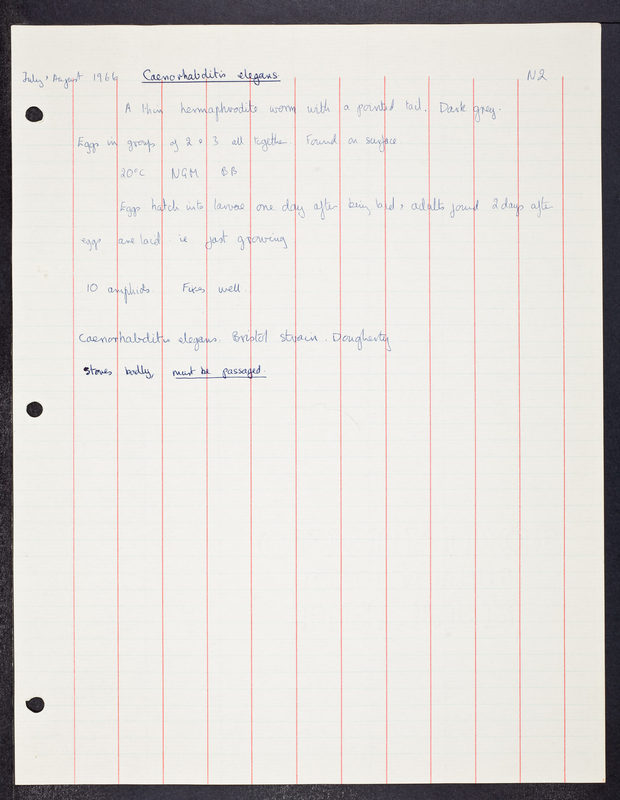 July, August 1964 Caenorhabditis elegans N2
A thin hermaphrodite worm with a pointed tail. Dark grey.
Eggs in groups of 2 or 3 all together. Found on surface
20°C NGM BB
Eggs hatch into larvae one day after being laid, adults found 2 days after
eggs are laid ie fast growing
10 amphids. Fixes well.
Caenorhabditis elegans. Bristol strain. Dougherty
Stores badly, must be passaged.